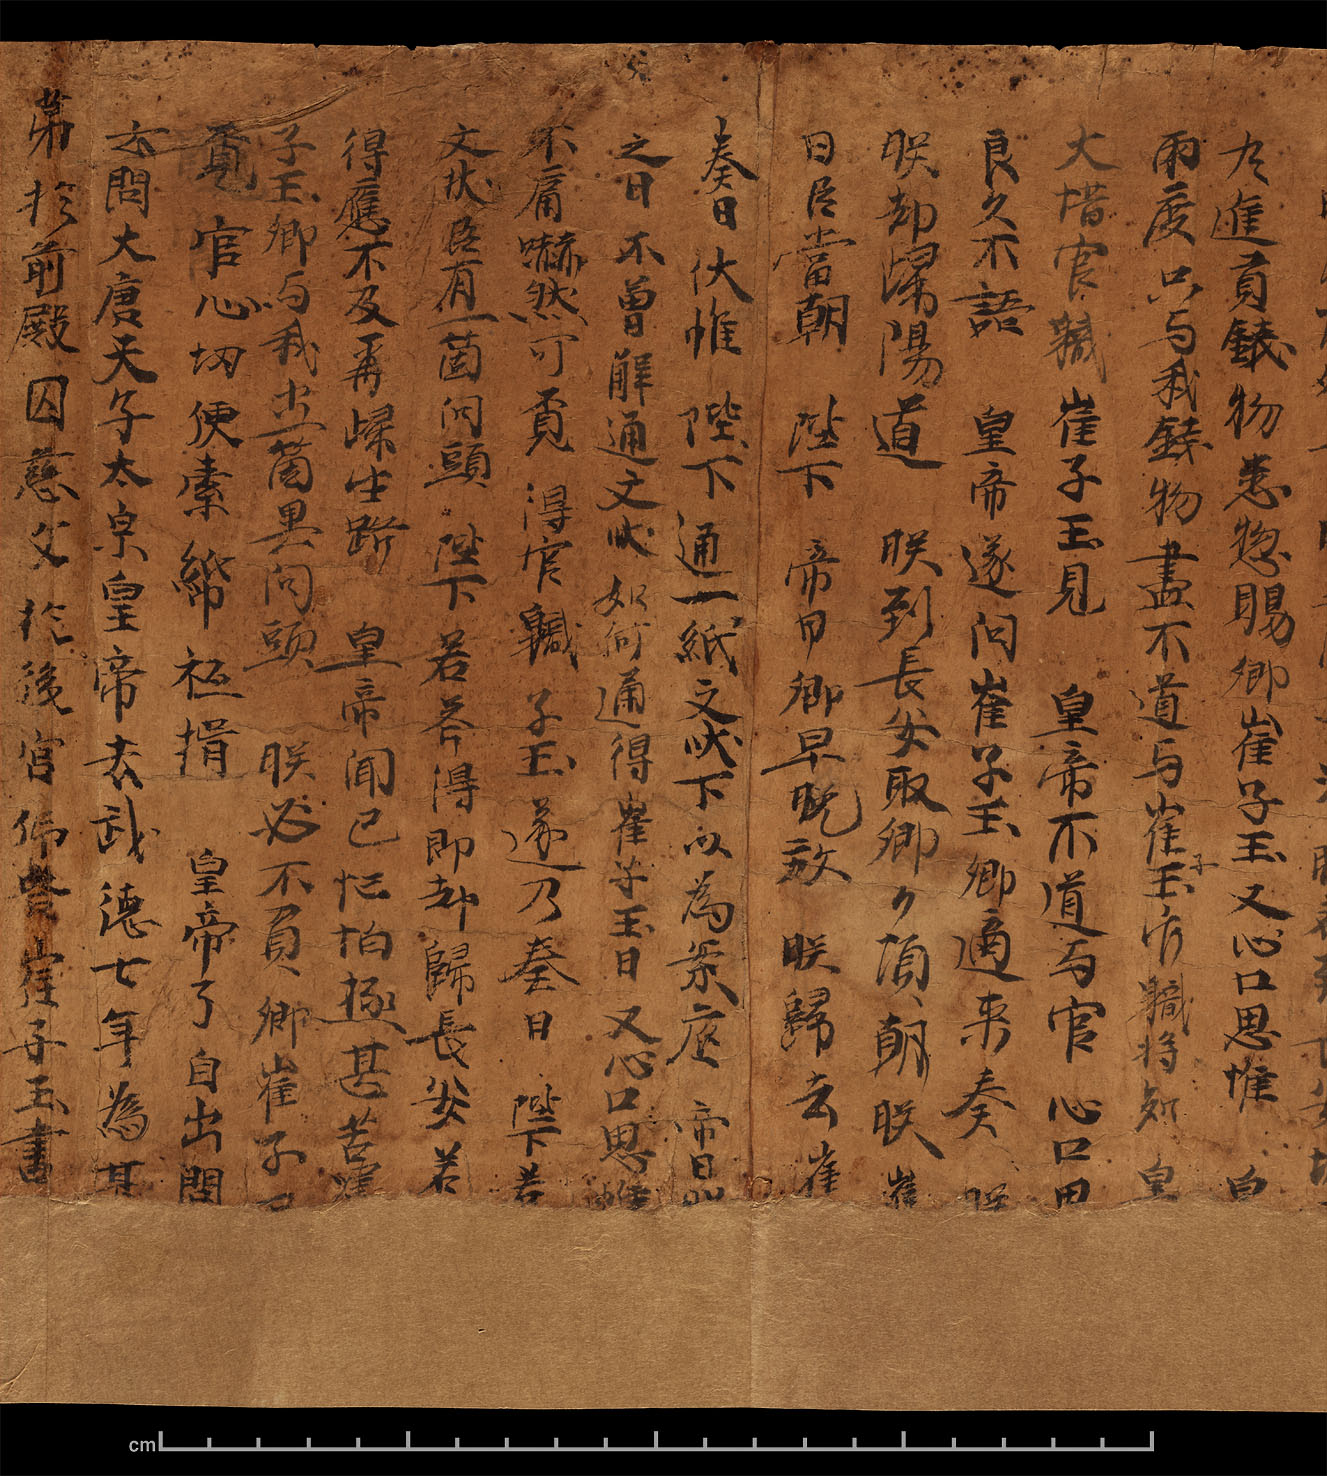 尤進貢錢物悉惣賜卿崔子玉又心口思惟
兩度只与我錢物盡不道与崔子玉官軄將知皇
大惜官軄崔子玉見皇帝不道与官心口思
良久不語皇帝遂问崔子玉卿適来奏朕
朕却㱕陽道朕到長安取卿ケ頂〻朝朕崔
曰臣當朝陛下帝曰卿早晚放朕歸去崔
奏曰伏惟陛下通一紙文狀下以為案㡳帝曰
之日不曾解通文狀如何通得崔子玉曰又心口思惟
不庸嚇然可覔得官軄子玉遂乃奏曰陛下若
文狀臣有一箇问頭陛下若荅得即却歸長安若
得應不及再㱕生路皇帝闻已忙怕極甚苦嘱
子玉卿与我出一箇異问頭朕必不負卿崔子玉
覔官心切便索紙祗揖皇帝了自出問
云問大唐天子太宗皇帝去武德七年為甚
弟於前殿囚慈父於後宮仰荅崔子玉書